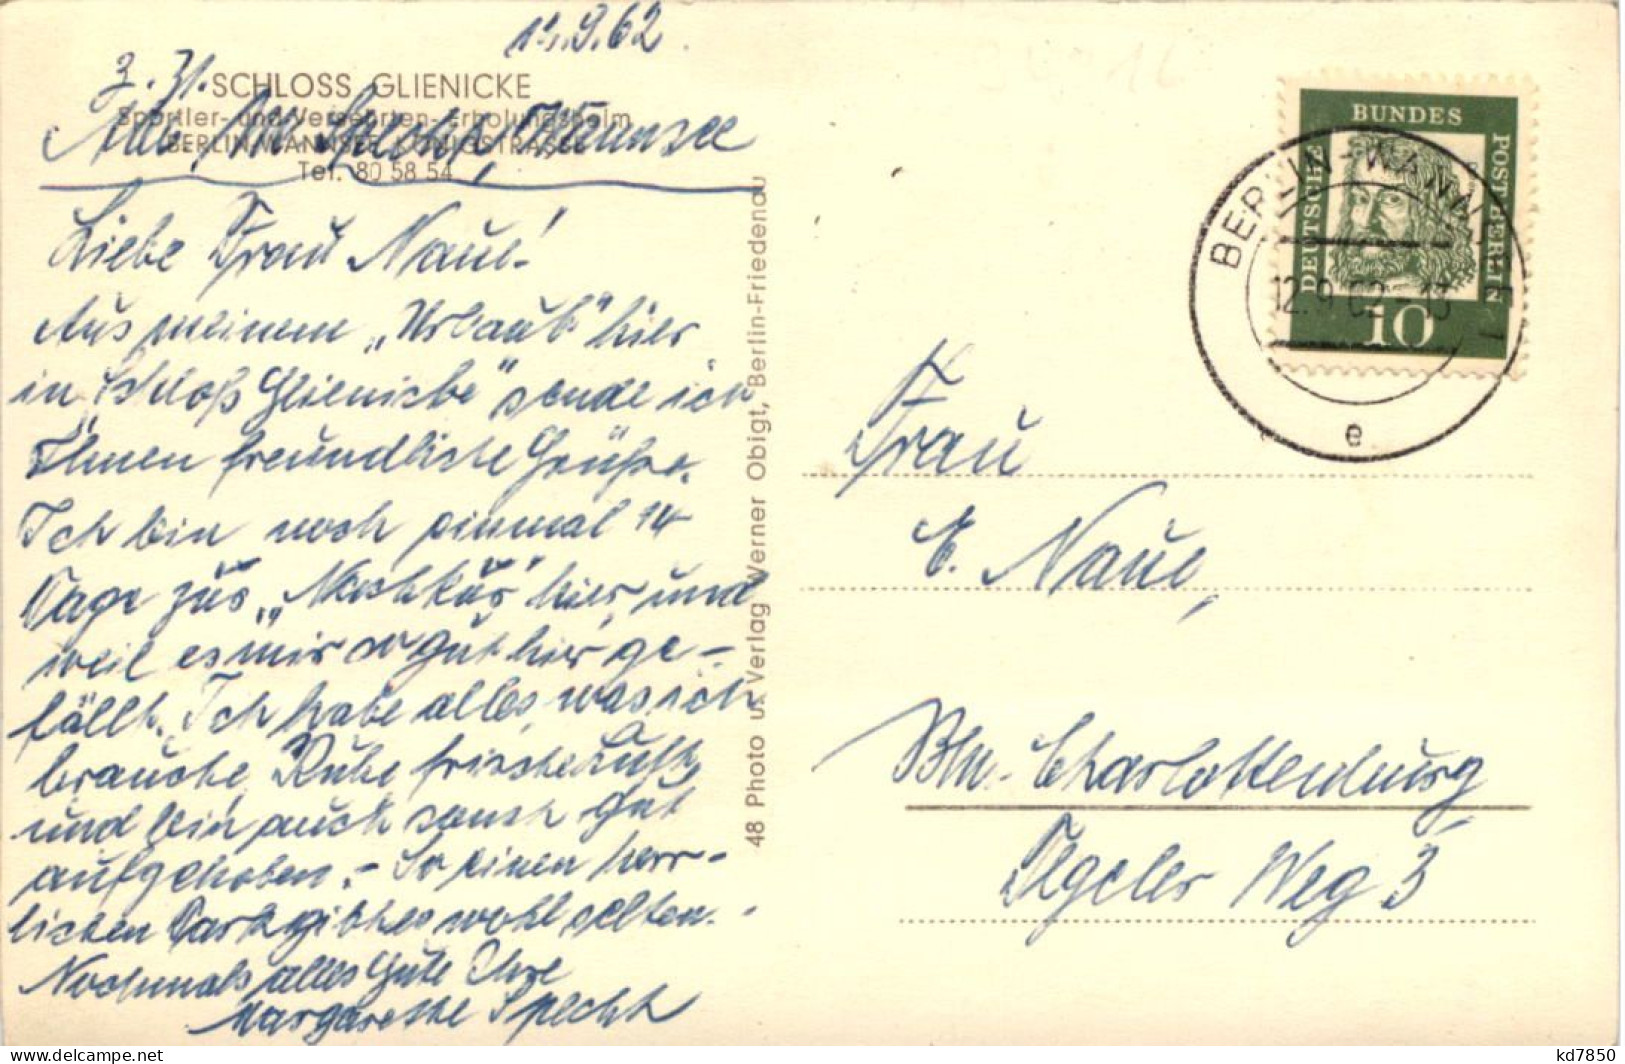 12.9.62
z. Zt.
SCHLOSS GLIENICKE
Sportler- und Versehrten-Erholungsheim
BERLIN-WANNSEE, KÖNIGSTRASSE
Tel. 80 58 54
Specht, Wannsee
Liebe Frau Naue!
Aus meinem „Urlaub" hier
in „Schloß Glienicke" sende ich
Ihnen freundliche Grüße.
Ich bin noch einmal 14
Tage zur „Nachkur" hier, und
weil es mir so gut hier ge-
fällt. Ich habe alles, was ich
brauche, Ruhe frische Luft,
und bin auch sonst gut
aufgehoben. - So einen herr-
lichen Park gibt es wohl selten.
Nochmals alles Gute Ihre
Margarethe Specht
48 Photo u. Verlag Werner Obigt, Berlin-Friedenau
DEUTSCHE BUNDESPOST BERLIN
10
BERLIN-WANNSEE 1
12.9.62-13
e
Frau
E. Naue,
Bln.-Charlottenburg
Tegeler Weg 3
kd7850